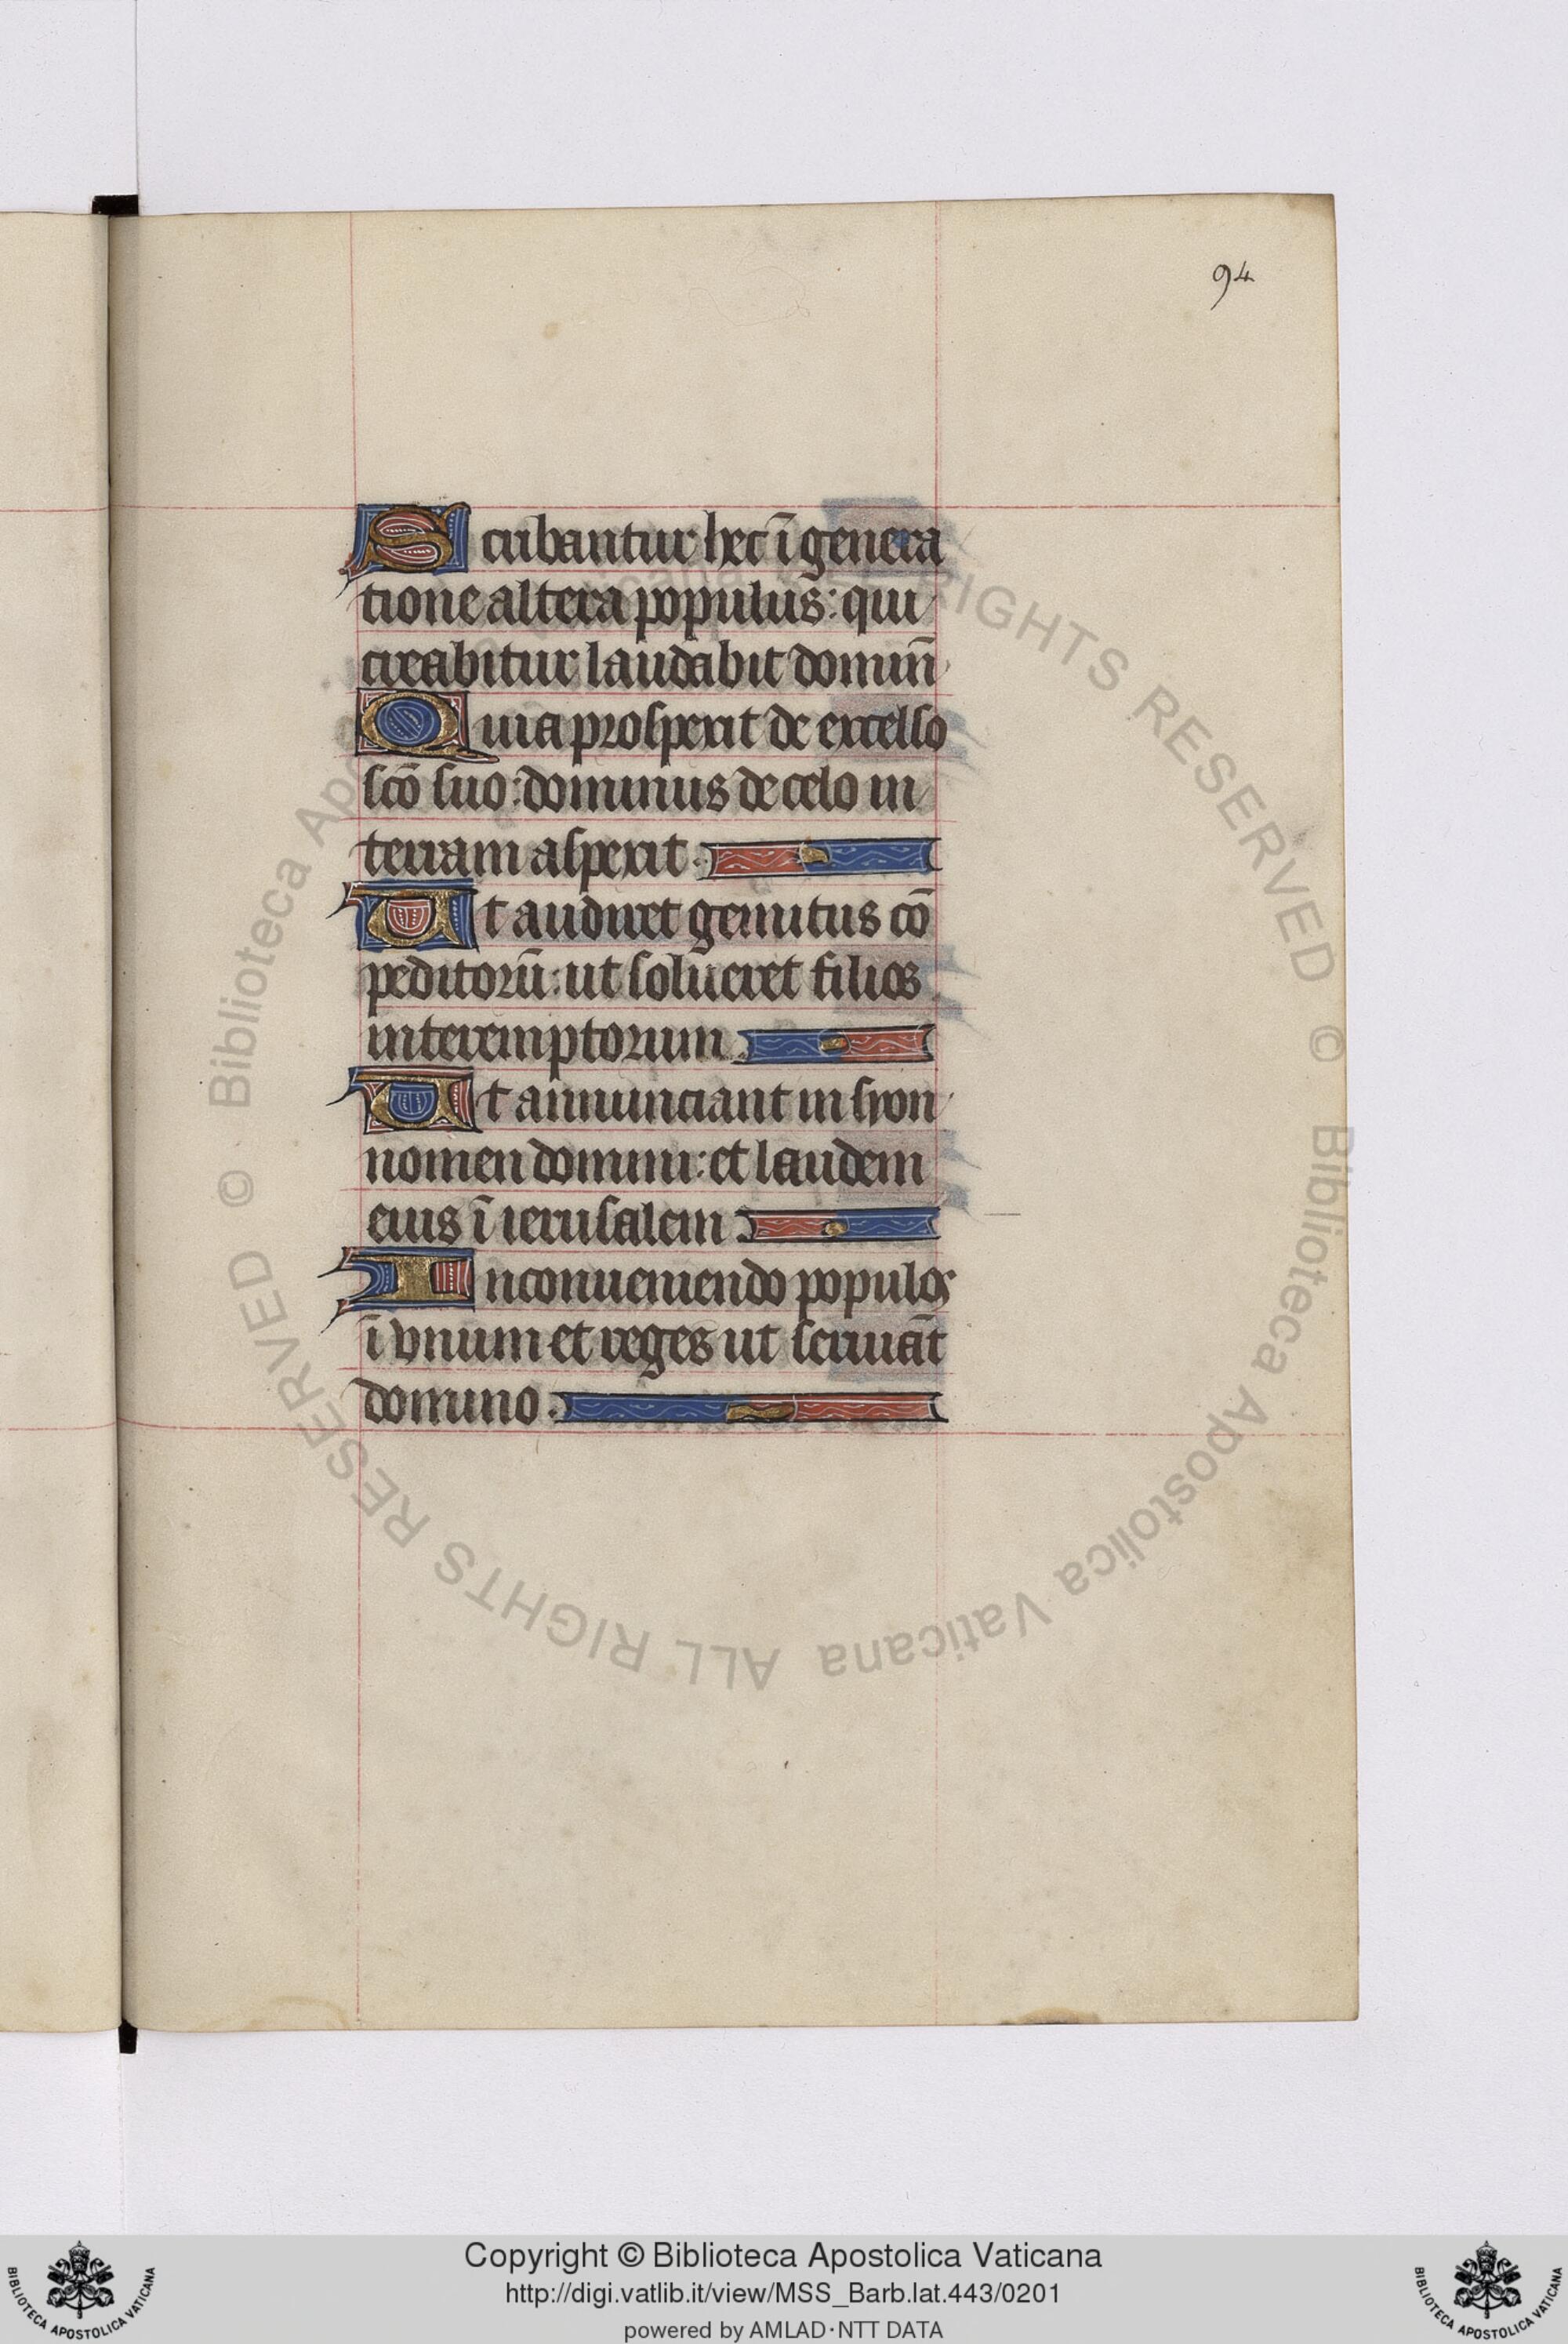 94
Scribantur hec ī genera
tione altera populus: qui
creabitur laudabit domin̄
Quia prospexit de excelso
sc̄o suo: dominus de celo in
terram aspexit.
Ut audiret gemitus cō
peditorū: ut solueret filios
interemptorum.
Ut annuncient in syon
nomen domini: et laudem
eius ī ierusalem
In conueniendo populos
ī vnum et reges ut seruiāt
domino.
© Biblioteca Apostolica Vaticana ALL RIGHTS RESERVED © Biblioteca Apostolica Vaticana ALL RIGHTS RESERVED
Copyright © Biblioteca Apostolica Vaticana
http://digi.vatlib.it/view/MSS_Barb.lat.443/0201
powered by AMLAD·NTT DATA
BIBLIOTECA APOSTOLICA VATICANA
BIBLIOTECA APOSTOLICA VATICANA